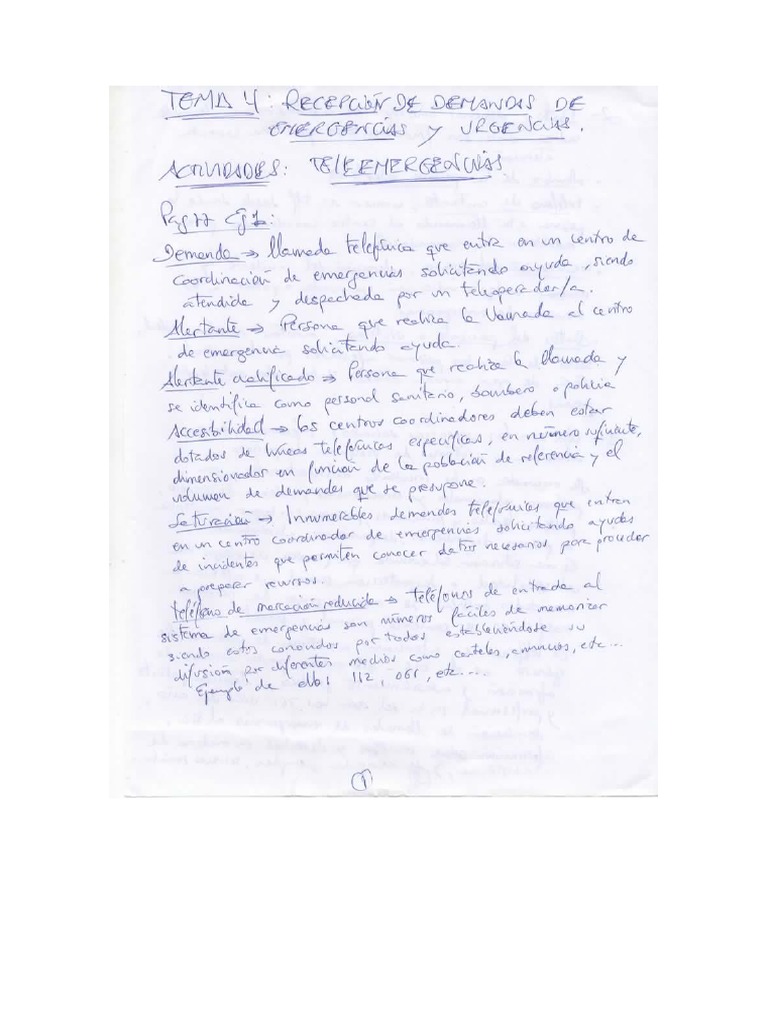 TEMA 4: RECEPCIÓN DE DEMANDAS DE
EMERGENCIAS Y URGENCIAS.
ACTIVIDADES: TELEEMERGENCIAS
Pag 77 Ej 1:
Demanda → llamada telefónica que entra en un centro de
coordinación de emergencias solicitando ayuda, siendo
atendida y despachada por un teleoperador/a.
Alertante → Persona que realiza la llamada al centro
de emergencia solicitando ayuda.
Alertante cualificado → Persona que realiza la llamada y
se identifica como personal sanitario, bombero o policia
Accesibilidad → los centros coordinadores deben estar
dotados de lineas telefónicas específicas, en número suficiente,
dimensionador en función de la población de referencia y el
volumen de demandas que se presupone.
Saturación → Innumerables demandas telefónicas que entran
en un centro coordinador de emergencias solicitando ayudas
de incidentes que permiten conocer datos necesarios para proceder
a preparar recursos.
teléfono de marcación reducida → teléfonos de entrada al
sistema de emergencias son números fáciles de memorizar
siendo estos conocidos por todos estableciéndose su
difusión por diferentes medios como carteles, anuncios, etc...
Ejemplo de ello: 112, 061, etc....
1